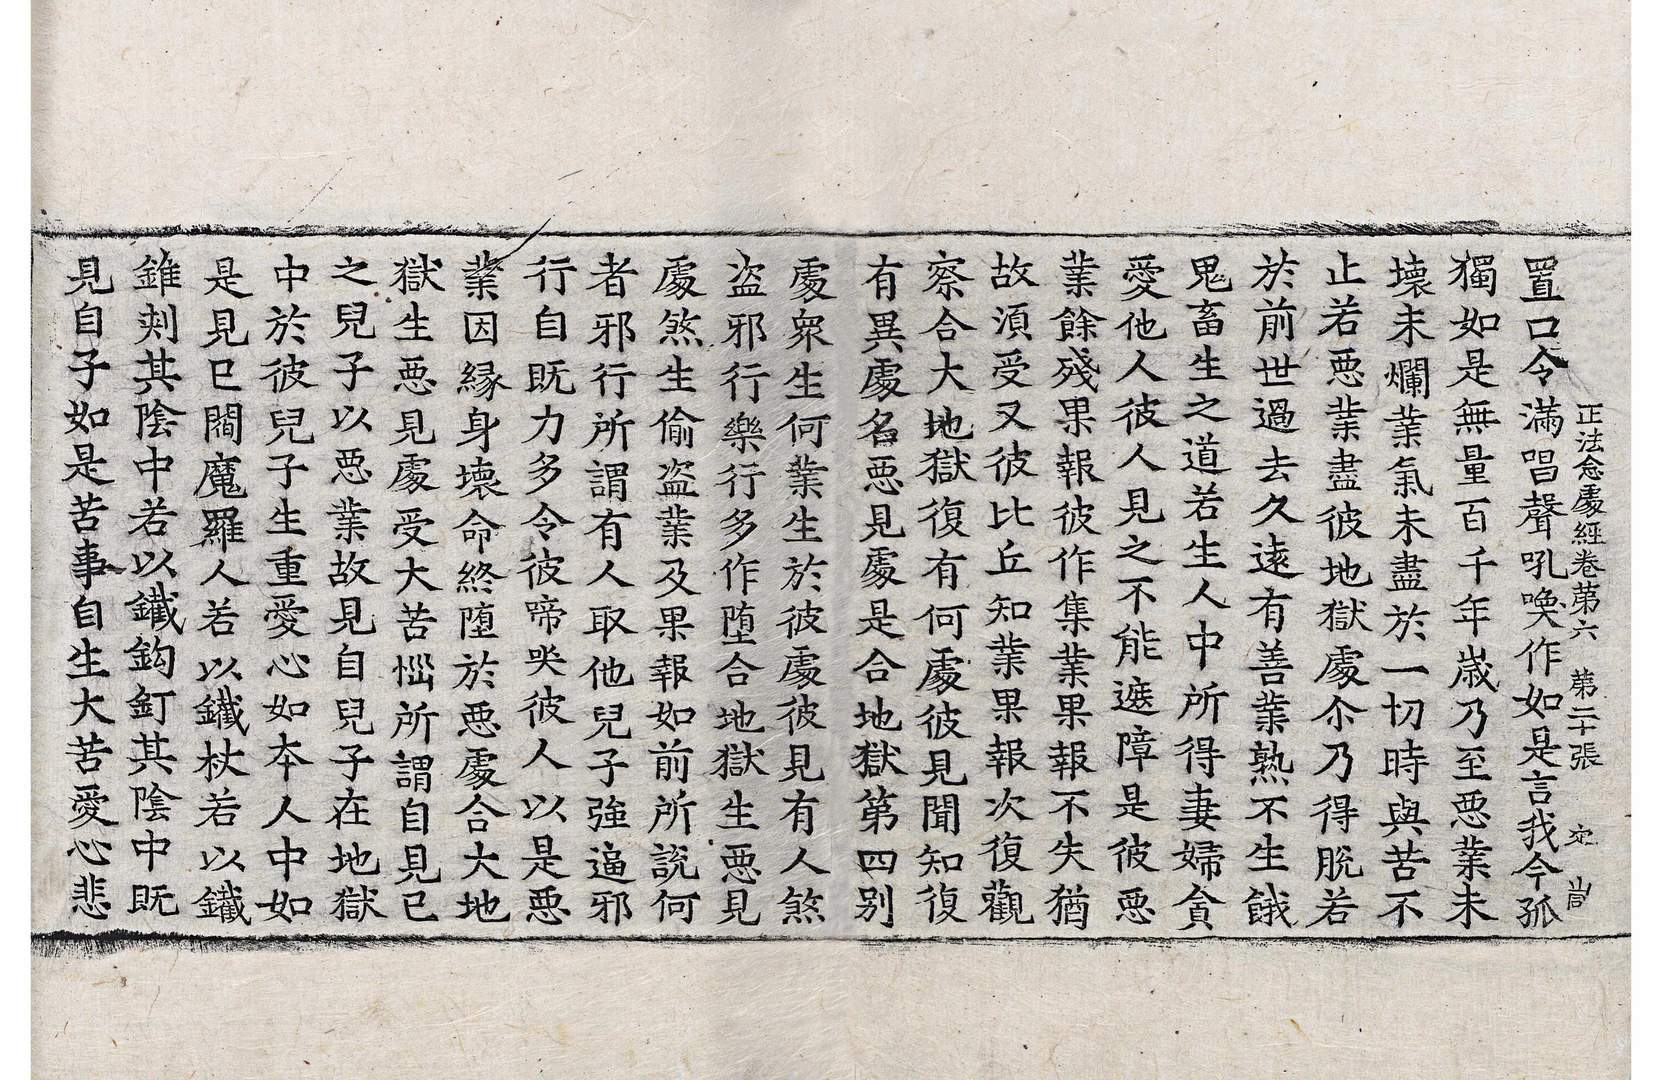 正法念處經卷第六 第二十張 定
置口令滿唱聲吼喚作如是言我今孤
獨如是無量百千年歲乃至惡業未
壞未爛業氣未盡於一切時與苦不
止若惡業盡彼地獄處尒乃得脫若
於前世過去久遠有善業熟不生餓
鬼畜生之道若生人中所得妻婦貪
愛他人彼人見之不能遮障是彼惡
業餘殘果報彼作集業果報不失猶
故湏受又彼比丘知業果報次復觀
察合大地獄復有何處彼見聞知復
有異處名惡見處是合地獄第四别
處衆生何業生於彼處彼見有人煞
盗邪行樂行多作墮合地獄生惡見
處煞生偷盗業及果報如前所說何
者邪行所謂有人取他兒子強逼邪
行自既力多令彼啼哭彼人以是惡
業因緣身壞命終墮於惡處合大地
獄生惡見處受大苦惱所謂自見己
之兒子以惡業故見自兒子在地獄
中於彼兒子生重愛心如本人中如
是見已閻魔羅人若以鐵杖若以鐵
錐刾其陰中若以鐵鈎釘其陰中既
見自子如是苦事自生大苦愛心悲